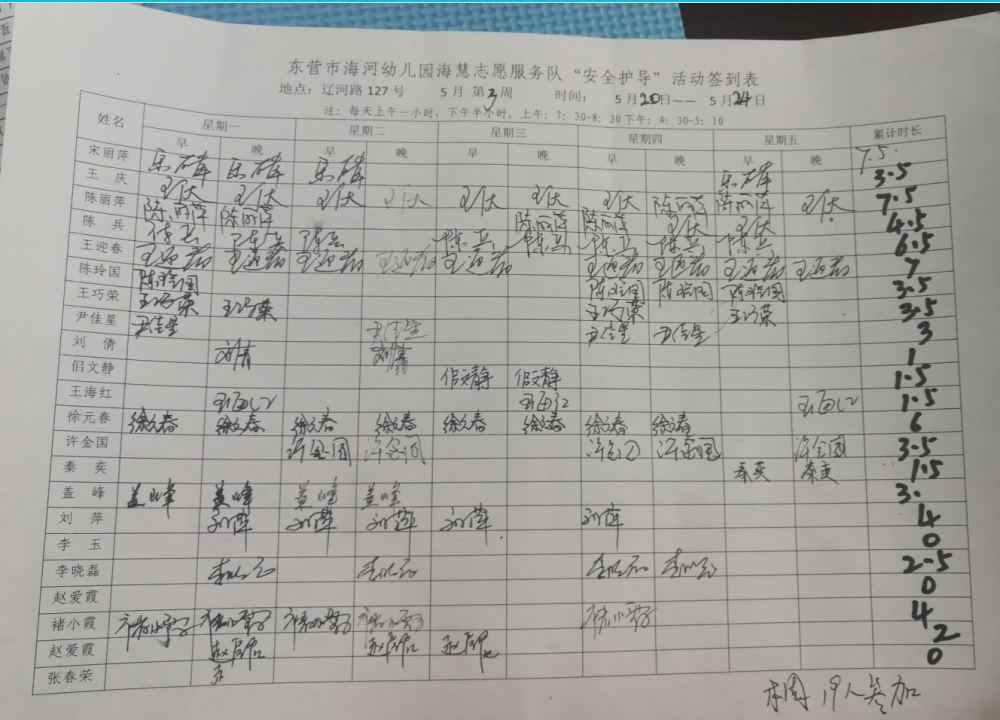 东营市海河幼儿园海慧志愿服务队“安全护导”活动签到表
地点：辽河路127号 5月第3周 时间： 5月20日—— 5月24日
注：每天上午一小时，下午半小时，上午：7：30-8：30 下午：4：30-5：10
姓名 星期一 星期二 星期三 星期四 星期五 累计时长
早 晚 早 晚 早 晚 早 晚 早 晚
宋丽萍 7.5.
王庆 3.5
陈丽萍 陈丽萍 陈丽萍 陈丽萍 陈丽萍 陈丽萍 陈丽萍 7.5
陈兵 陈兵 陈兵 陈兵 陈兵 陈兵 陈兵 陈兵 4.5
王迎春 王迎春 王迎春 王迎春 王迎春 王迎春 王迎春 王迎春 王迎春 王迎春 6.5
陈玲国 陈玲国 陈玲国 陈玲国 陈玲国 7
王巧荣 王巧荣 王巧荣 王巧荣 王巧荣 3.5
尹佳星 尹佳星 尹佳星 尹佳星 尹佳星 3.5
刘倩 刘倩 刘倩 3
佀文静 佀文静 佀文静 1
王海红 王海红 王海红 王海红 1.5
徐元春 徐元春 徐元春 徐元春 徐元春 徐元春 徐元春 徐元春 徐元春 1.5
许金国 许金国 许金国 许金国 许金国 许金国 6
秦奕 秦奕 秦奕 3.5
盖峰 盖峰 盖峰 盖峰 盖峰 1.5
刘萍 刘萍 刘萍 刘萍 刘萍 刘萍 3.
李玉 4
李晓磊 李晓磊 李晓磊 李晓磊 李晓磊 0
赵爱霞 2.5
褚小霞 0
赵爱霞 4
张春荣 2
0
本周 19人参加